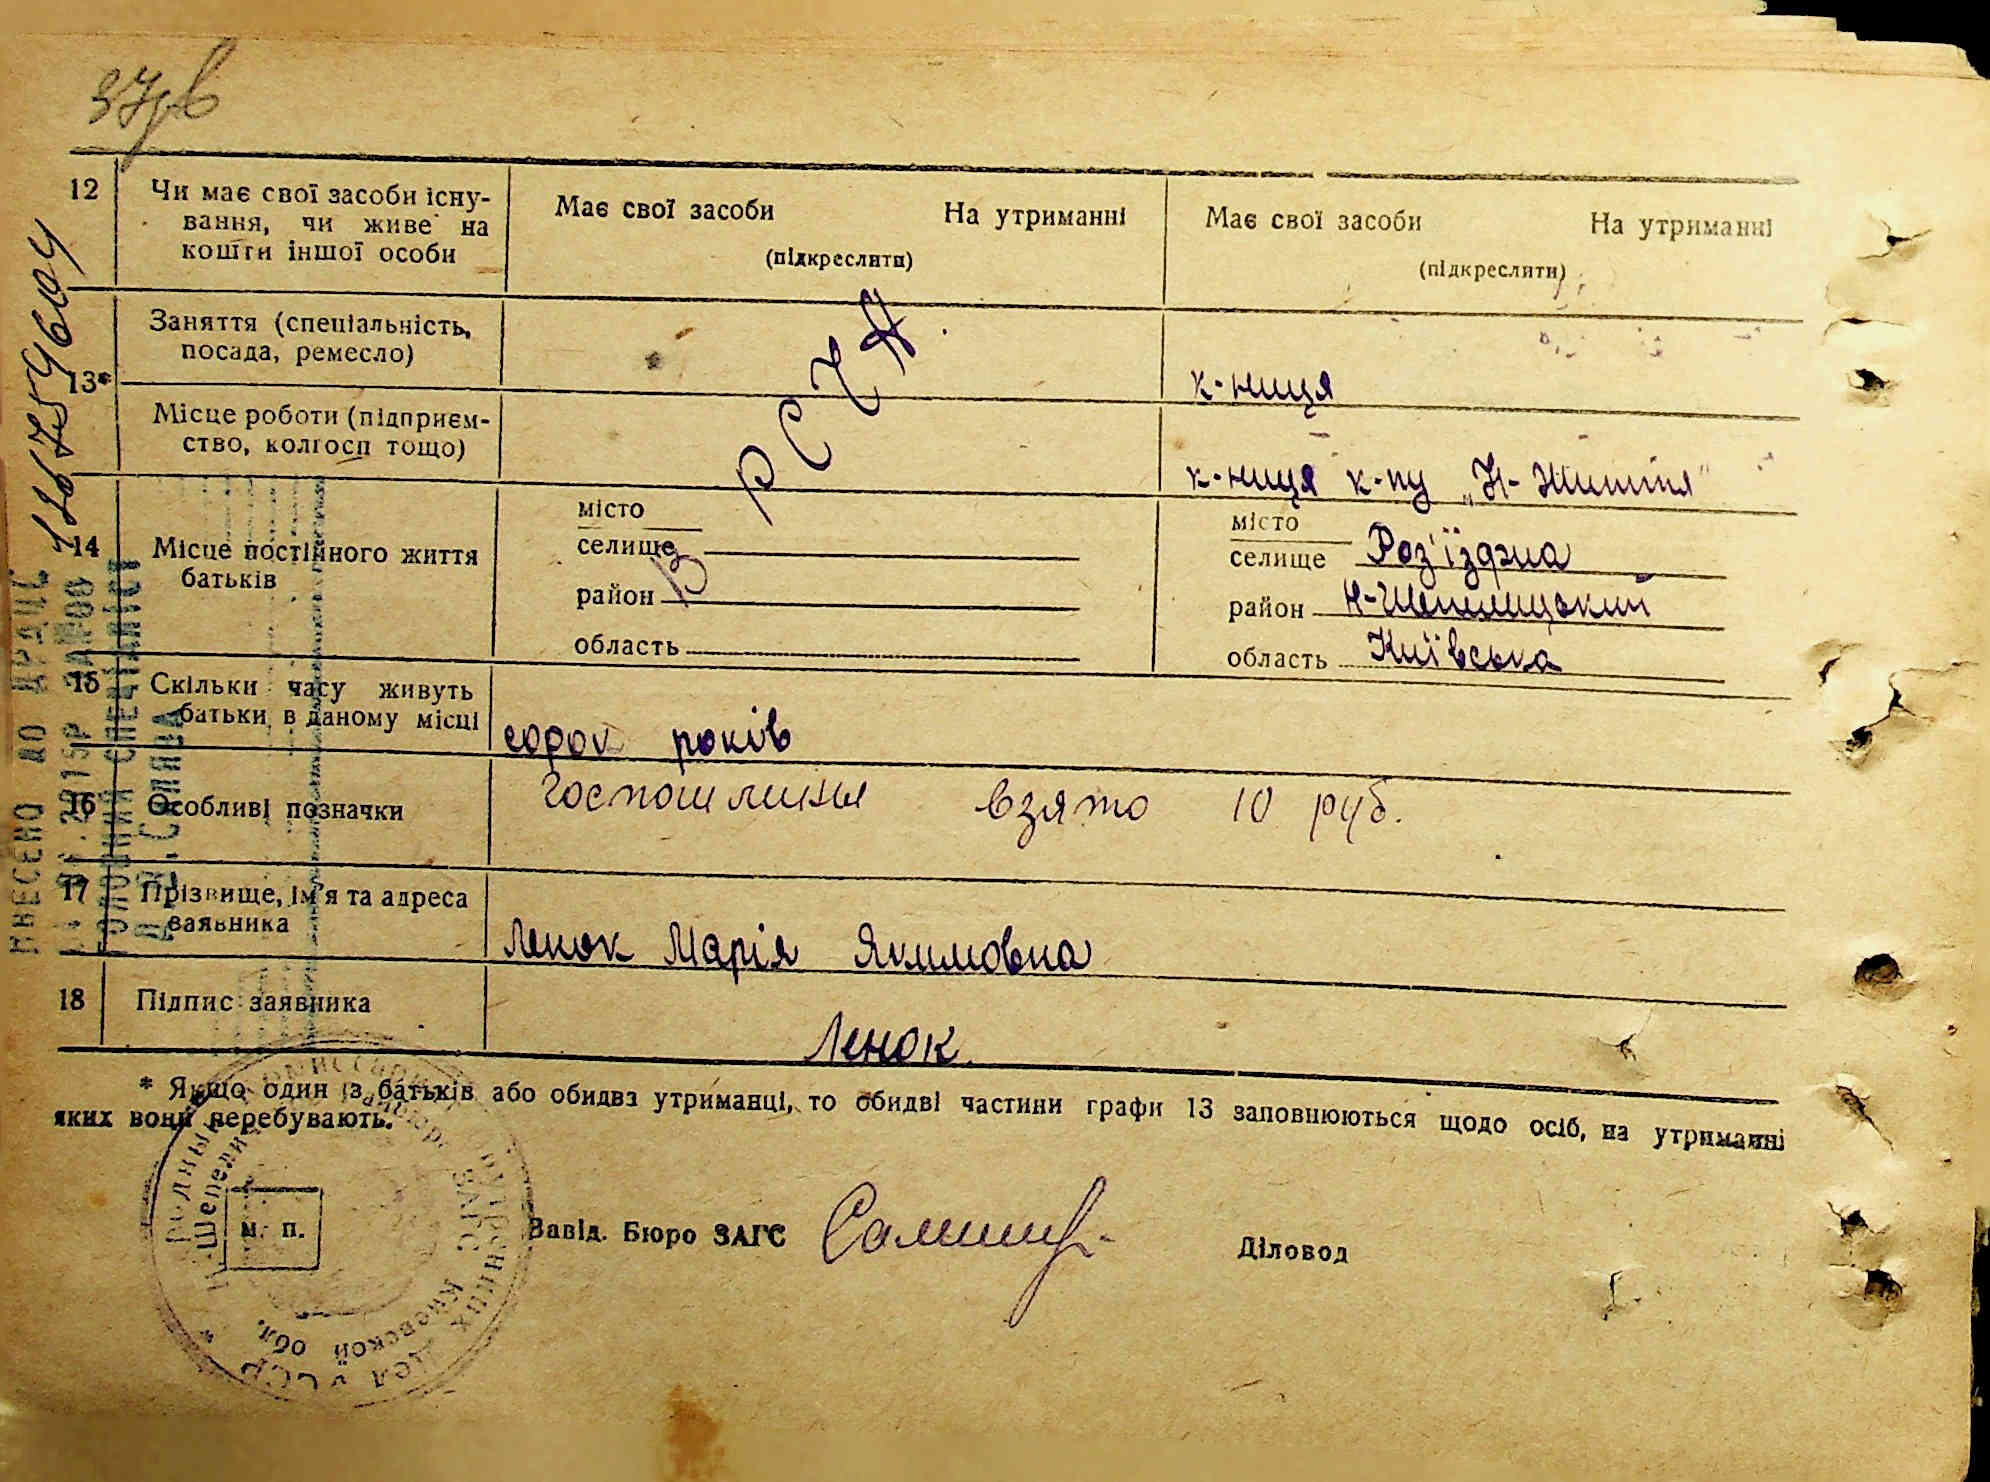 37дв
12 Чи має свої засоби існу-
вання, чи живе на
кошти іншої особи
Має свої засоби На утриманні
(підкреслити)
Має свої засоби На утриманні
(підкреслити)
13*
Заняття (спеціальність,
посада, ремесло)
к-ниця
Місце роботи (підприєм-
ство, колгосп тощо)
к-ниця к-пу „Н-Життя"
В РСЧА
14 Місце постійного життя
батьків
місто
селище
район
область
місто
селище Роз'їзджа
район Н-Шепелицький
область Київська
15 Скільки часу живуть
батьки в даному місці
сорок років
16 Особливі позначки
Госпошлины взято 10 руб.
17 Прізвище, ім'я та адреса
заявника
Ленок Марія Якимовна
18 Підпис заявника
Ленок
* Якщо один із батьків або обидва утриманці, то обидві частини графи 13 заповнюються щодо осіб, на утриманні
яких вони перебувають.
м. п.
Завід. Бюро ЗАГС
Діловод
ВНЕСЕНО ДО ДРАЦС
Киевской обл.
ЗАГС
УССР